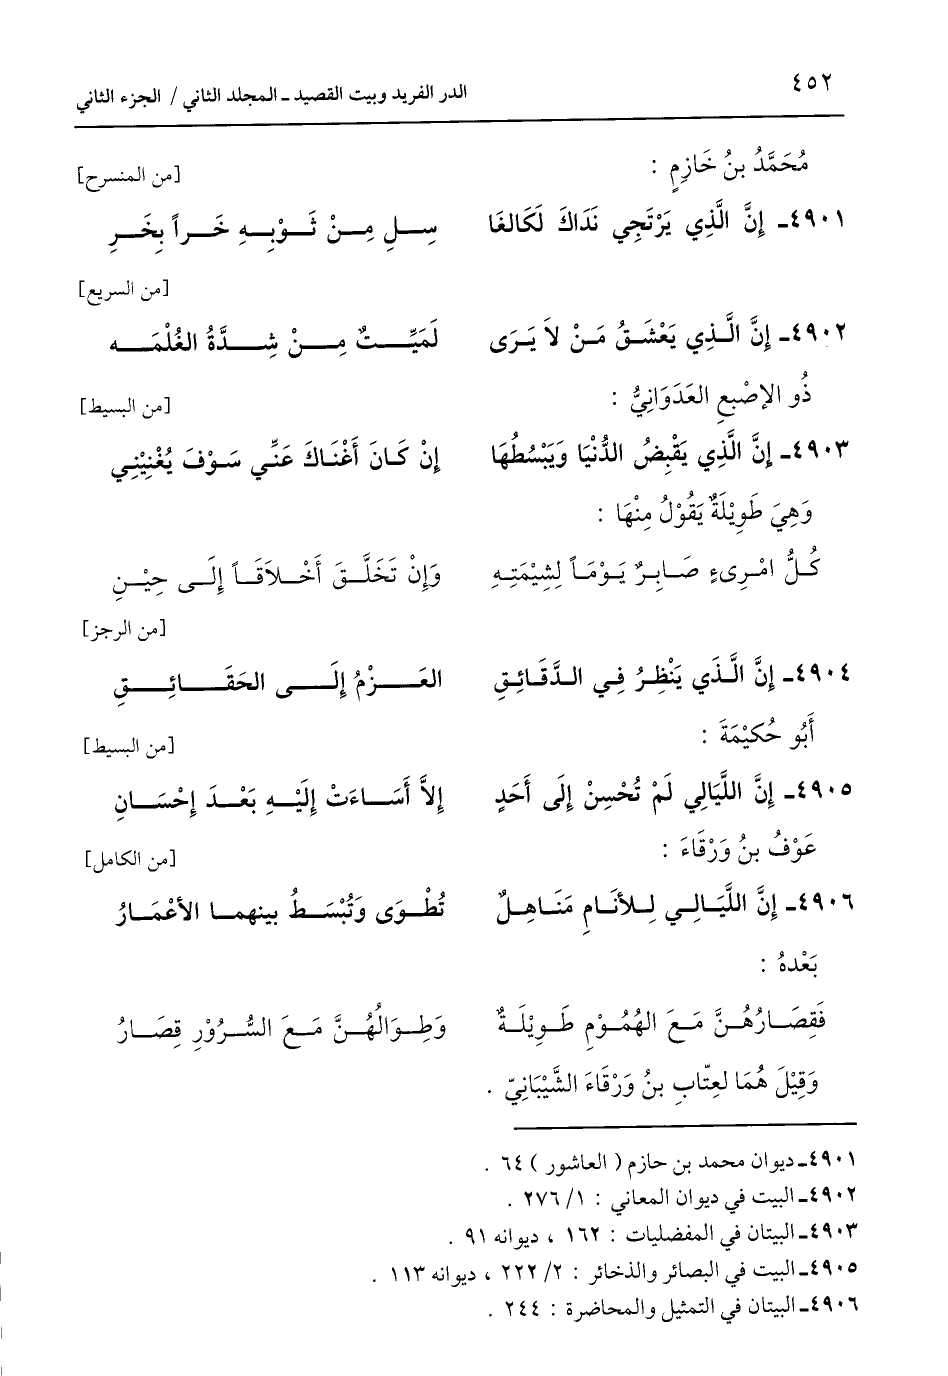 ٤٥٢
الدر الفريد وبيت القصيد ـ المجلد الثاني / الجزء الثاني
مُحَمَّدُ بنُ خَازِمٍ :
[من المنسرح]
٤٩٠١ـ إِنَّ الَّذِي يَرْتَجِي نَدَاكَ لَكَالغَا سِــلِ مِــنْ ثَــوْبِــهِ خَــراً بِخَــرِ
[من السريع]
٤٩٠٢ـ إِنَّ الَّـذِي يَعْشَـقُ مَـنْ لاَ يَـرَى لَمَيِّــتٌ مِــنْ شِــدَّةُ الغُلْمَــه
ذُو الإصْبعِ العَدَوَانِيُّ :
[من البسيط]
٤٩٠٣ـ إِنَّ الَّذِي يَقْبِضُ الدُّنْيَا وَيَبْسُطُهَا إِنْ كَـانَ أَغْنَـاكَ عَنِّـي سَـوْفَ يُغْنِيْنِي
وَهِيَ طَوِيْلَةٌ يَقُوْلُ مِنْهَا :
كُـلُّ امْـرِىءٍ صَـابِـرٌ يَـوْمَـاً لِشِيْمَتِـهِ وَإِنْ تَخَلَّـقَ أَخْـلاَقَـاً إِلَـى حِيْـنِ
[من الرجز]
٤٩٠٤ـ إِنَّ الَّـذَي يَنْظِـرُ فِـي الـدَّقَـائِـقِ العَــزْمُ إِلَــى الحَقَــائِــقِ
أَبُو حُكَيْمَةَ :
[من البسيط]
٤٩٠٥ـ إِنَّ اللَّيَالِي لَمْ تُحْسِنْ إِلَى أَحَدٍ إِلاَّ أَسَــاءَتْ إِلَيْــهِ بَعْــدَ إِحْسَــانِ
عَوْفُ بنُ وَرْقَاءَ :
[من الكامل]
٤٩٠٦ـ إِنَّ اللَّيَـالِـي لِـلأنَـامِ مَنَـاهِـلٌ تُطْـوَى وَتُبْسَـطُ بينهمـا الأعْمَـارُ
بَعْدهُ :
فَقِصَـارُهُـنَّ مَـعَ الهُمُـوْمِ طَـوِيْلَـةٌ وَطِـوَالُهُـنَّ مَـعَ السُّـرُوْرِ قِصَـارُ
وَقِيْلَ هُمَا لعِتّابِ بنُ وَرْقَاءَ الشَّيْبَانِيّ .
٤٩٠١ـ ديوان محمد بن حازم ( العاشور ) ٦٤ .
٤٩٠٢ـ البيت في ديوان المعاني : ١/ ٢٧٦ .
٤٩٠٣ـ البيتان في المفضليات : ١٦٢ ، ديوانه ٩١ .
٤٩٠٥ـ البيت في البصائر والذخائر : ٢/ ٢٢٢ ، ديوانه ١١٣ .
٤٩٠٦ـ البيتان في التمثيل والمحاضرة : ٢٤٤ .